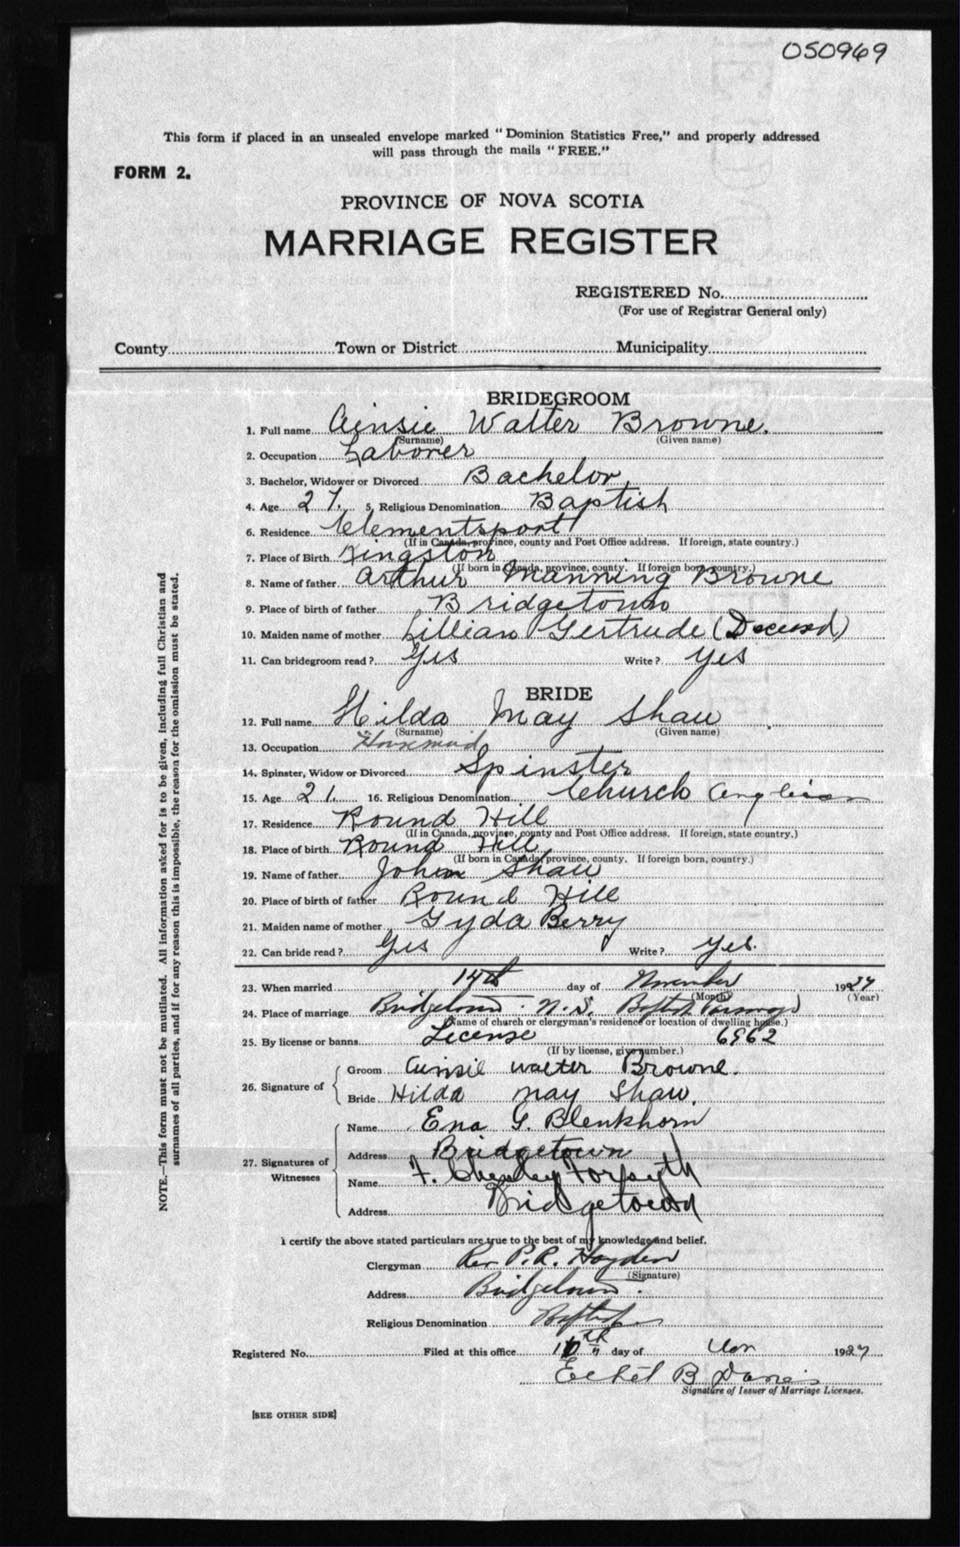 050969
This form if placed in an unsealed envelope marked "Dominion Statistics Free," and properly addressed
will pass through the mails "FREE."
FORM 2.
PROVINCE OF NOVA SCOTIA
MARRIAGE REGISTER
REGISTERED No.
(For use of Registrar General only)
County Town or District Municipality
BRIDEGROOM
1. Full name Ainsie Walter Browne.
(Surname) (Given name)
2. Occupation Laborer
3. Bachelor, Widower or Divorced Bachelor
4. Age 27. 5. Religious Denomination Baptist
6. Residence Clementsport
(If in Canada, province, county and Post Office address. If foreign, state country.)
7. Place of Birth Kingston
(If born in Canada, province, county. If foreign born, country.)
8. Name of father Arthur Manning Browne
9. Place of birth of father Bridgetown
10. Maiden name of mother Lillian Gertrude (Deceased)
11. Can bridegroom read? Yes Write? Yes
BRIDE
12. Full name Hilda May Shaw
(Surname) (Given name)
13. Occupation Housemaid
14. Spinster, Widow or Divorced Spinster
15. Age 21. 16. Religious Denomination Church Anglican
17. Residence Round Hill
(If in Canada, province, county and Post Office address. If foreign, state country.)
18. Place of birth Round Hill
(If born in Canada, province, county. If foreign born, country.)
19. Name of father John Shaw
20. Place of birth of father Round Hill
21. Maiden name of mother Gyda Berry
22. Can bride read? Yes Write? Yes.
23. When married 14th day of November 1927
(Month) (Year)
24. Place of marriage Bridgetown N.S. Baptist Parsonage
(Name of church or clergyman's residence or location of dwelling house.)
25. By license or banns License 6962
(If by license, give number.)
26. Signature of
Groom Ainsie Walter Browne.
Bride Hilda May Shaw.
27. Signatures of Witnesses
Name Ena G. Blenkhorn
Address Bridgetown
Name F. Forsyth
Address Bridgetown
I certify the above stated particulars are true to the best of my knowledge and belief.
Clergyman Rev P.R. Hayden
(Signature)
Address Bridgetown.
Religious Denomination Baptist
Registered No. Filed at this office day of Nov 1927
Ethel B Davies
Signature of Issuer of Marriage Licenses.
[SEE OTHER SIDE]
NOTE.—This form must not be mutilated. All information asked for is to be given, including full Christian and
surnames of all parties, and if for any reason this is impossible, the reason for the omission must be stated.